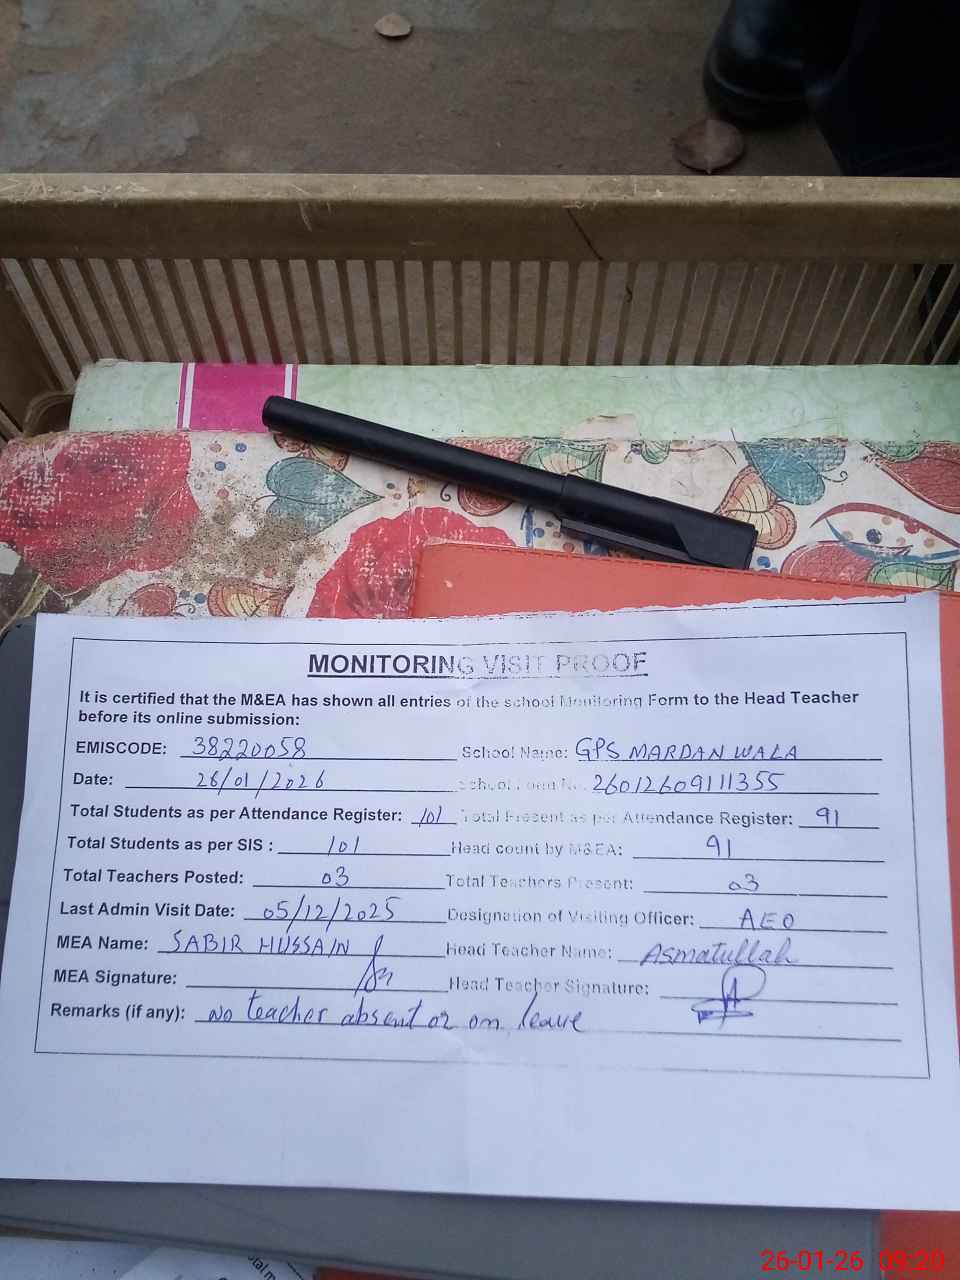 MONITORING VISIT PROOF
It is certified that the M&EA has shown all entries of the school Monitoring Form to the Head Teacher
before its online submission:
EMISCODE: 38220058 School Name: GPS MARDAN WALA
Date: 26/01/2026 School Form No. 26012609111355
Total Students as per Attendance Register: 101 Total Present as per Attendance Register: 91
Total Students as per SIS : 101 Head count by M&EA: 91
Total Teachers Posted: 03 Total Teachers Present: 03
Last Admin Visit Date: 05/12/2025 Designation of Visiting Officer: AEO
MEA Name: SABIR HUSSAIN Head Teacher Name: Asmatullah
MEA Signature: Head Teacher Signature:
Remarks (if any): No teacher absent or on leave
26-01-26 09:20